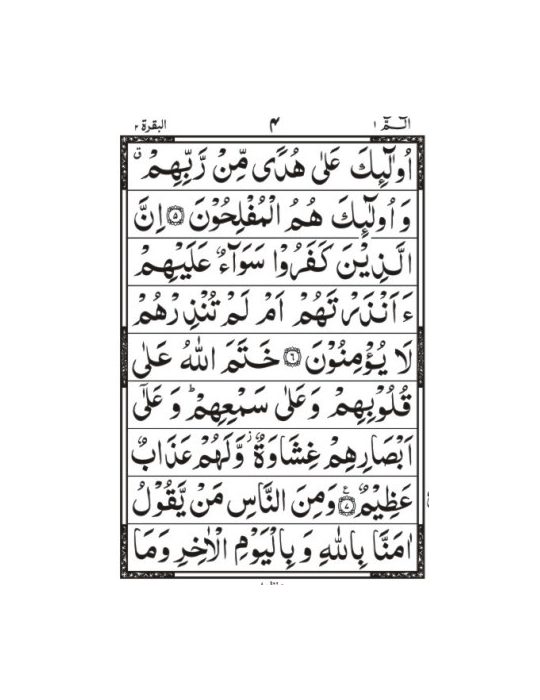 الٓمّٓ ١ ۴ البقرة ٢
اُولٰٓئِكَ عَلٰى هُدًى مِّنْ رَّبِّهِمْ ۙق
وَ اُولٰٓئِكَ هُمُ الْمُفْلِحُوْنَ ﴿۵﴾ اِنَّ
الَّذِيْنَ كَفَرُوْا سَوَآءٌ عَلَيْهِمْ
ءَاَنْذَرْتَهُمْ اَمْ لَمْ تُنْذِرْهُمْ
لَا يُؤْمِنُوْنَ ﴿٦﴾ خَتَمَ اللّٰهُ عَلٰى
قُلُوْبِهِمْ وَ عَلٰى سَمْعِهِمْ ؕ وَ عَلٰٓى
اَبْصَارِهِمْ غِشَاوَةٌ ز وَّلَهُمْ عَذَابٌ
عَظِيْمٌ ﴿٧﴾ ع وَمِنَ النَّاسِ مَنْ يَّقُوْلُ
اٰمَنَّا بِاللّٰهِ وَ بِالْيَوْمِ الْاٰخِرِ وَمَا